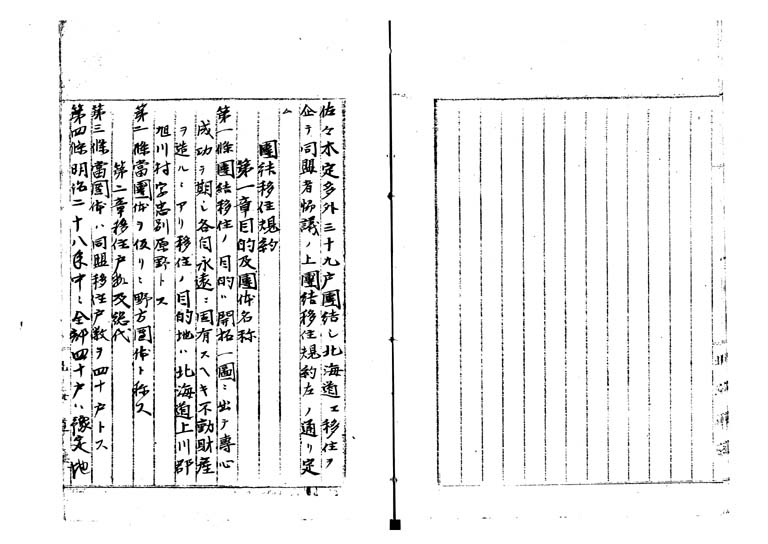 佐々木定多外三十九戸團結シ北海道ヱ移住ヲ
企テ同盟者協議ノ上團結移住規約左ノ通リ定
ム
團結移住規約
第一章目的及團体名称
第一條團結移住ノ目的ハ開拓一圖ニ出テ專心
成功ヲ期シ各自永遠ニ固有スヘキ不動財産
ヲ造ルニアリ移住ノ目的地ハ北海道上川郡
旭川村字忠別原野トス
第二條當團体ヲ仮リニ野方團体ト称ス
第二章移住戸数及総代
第三條當團体ハ同盟移住戸数ヲ四十戸トス
第四條明治二十八年中ニ全部四十戸ハ豫定地